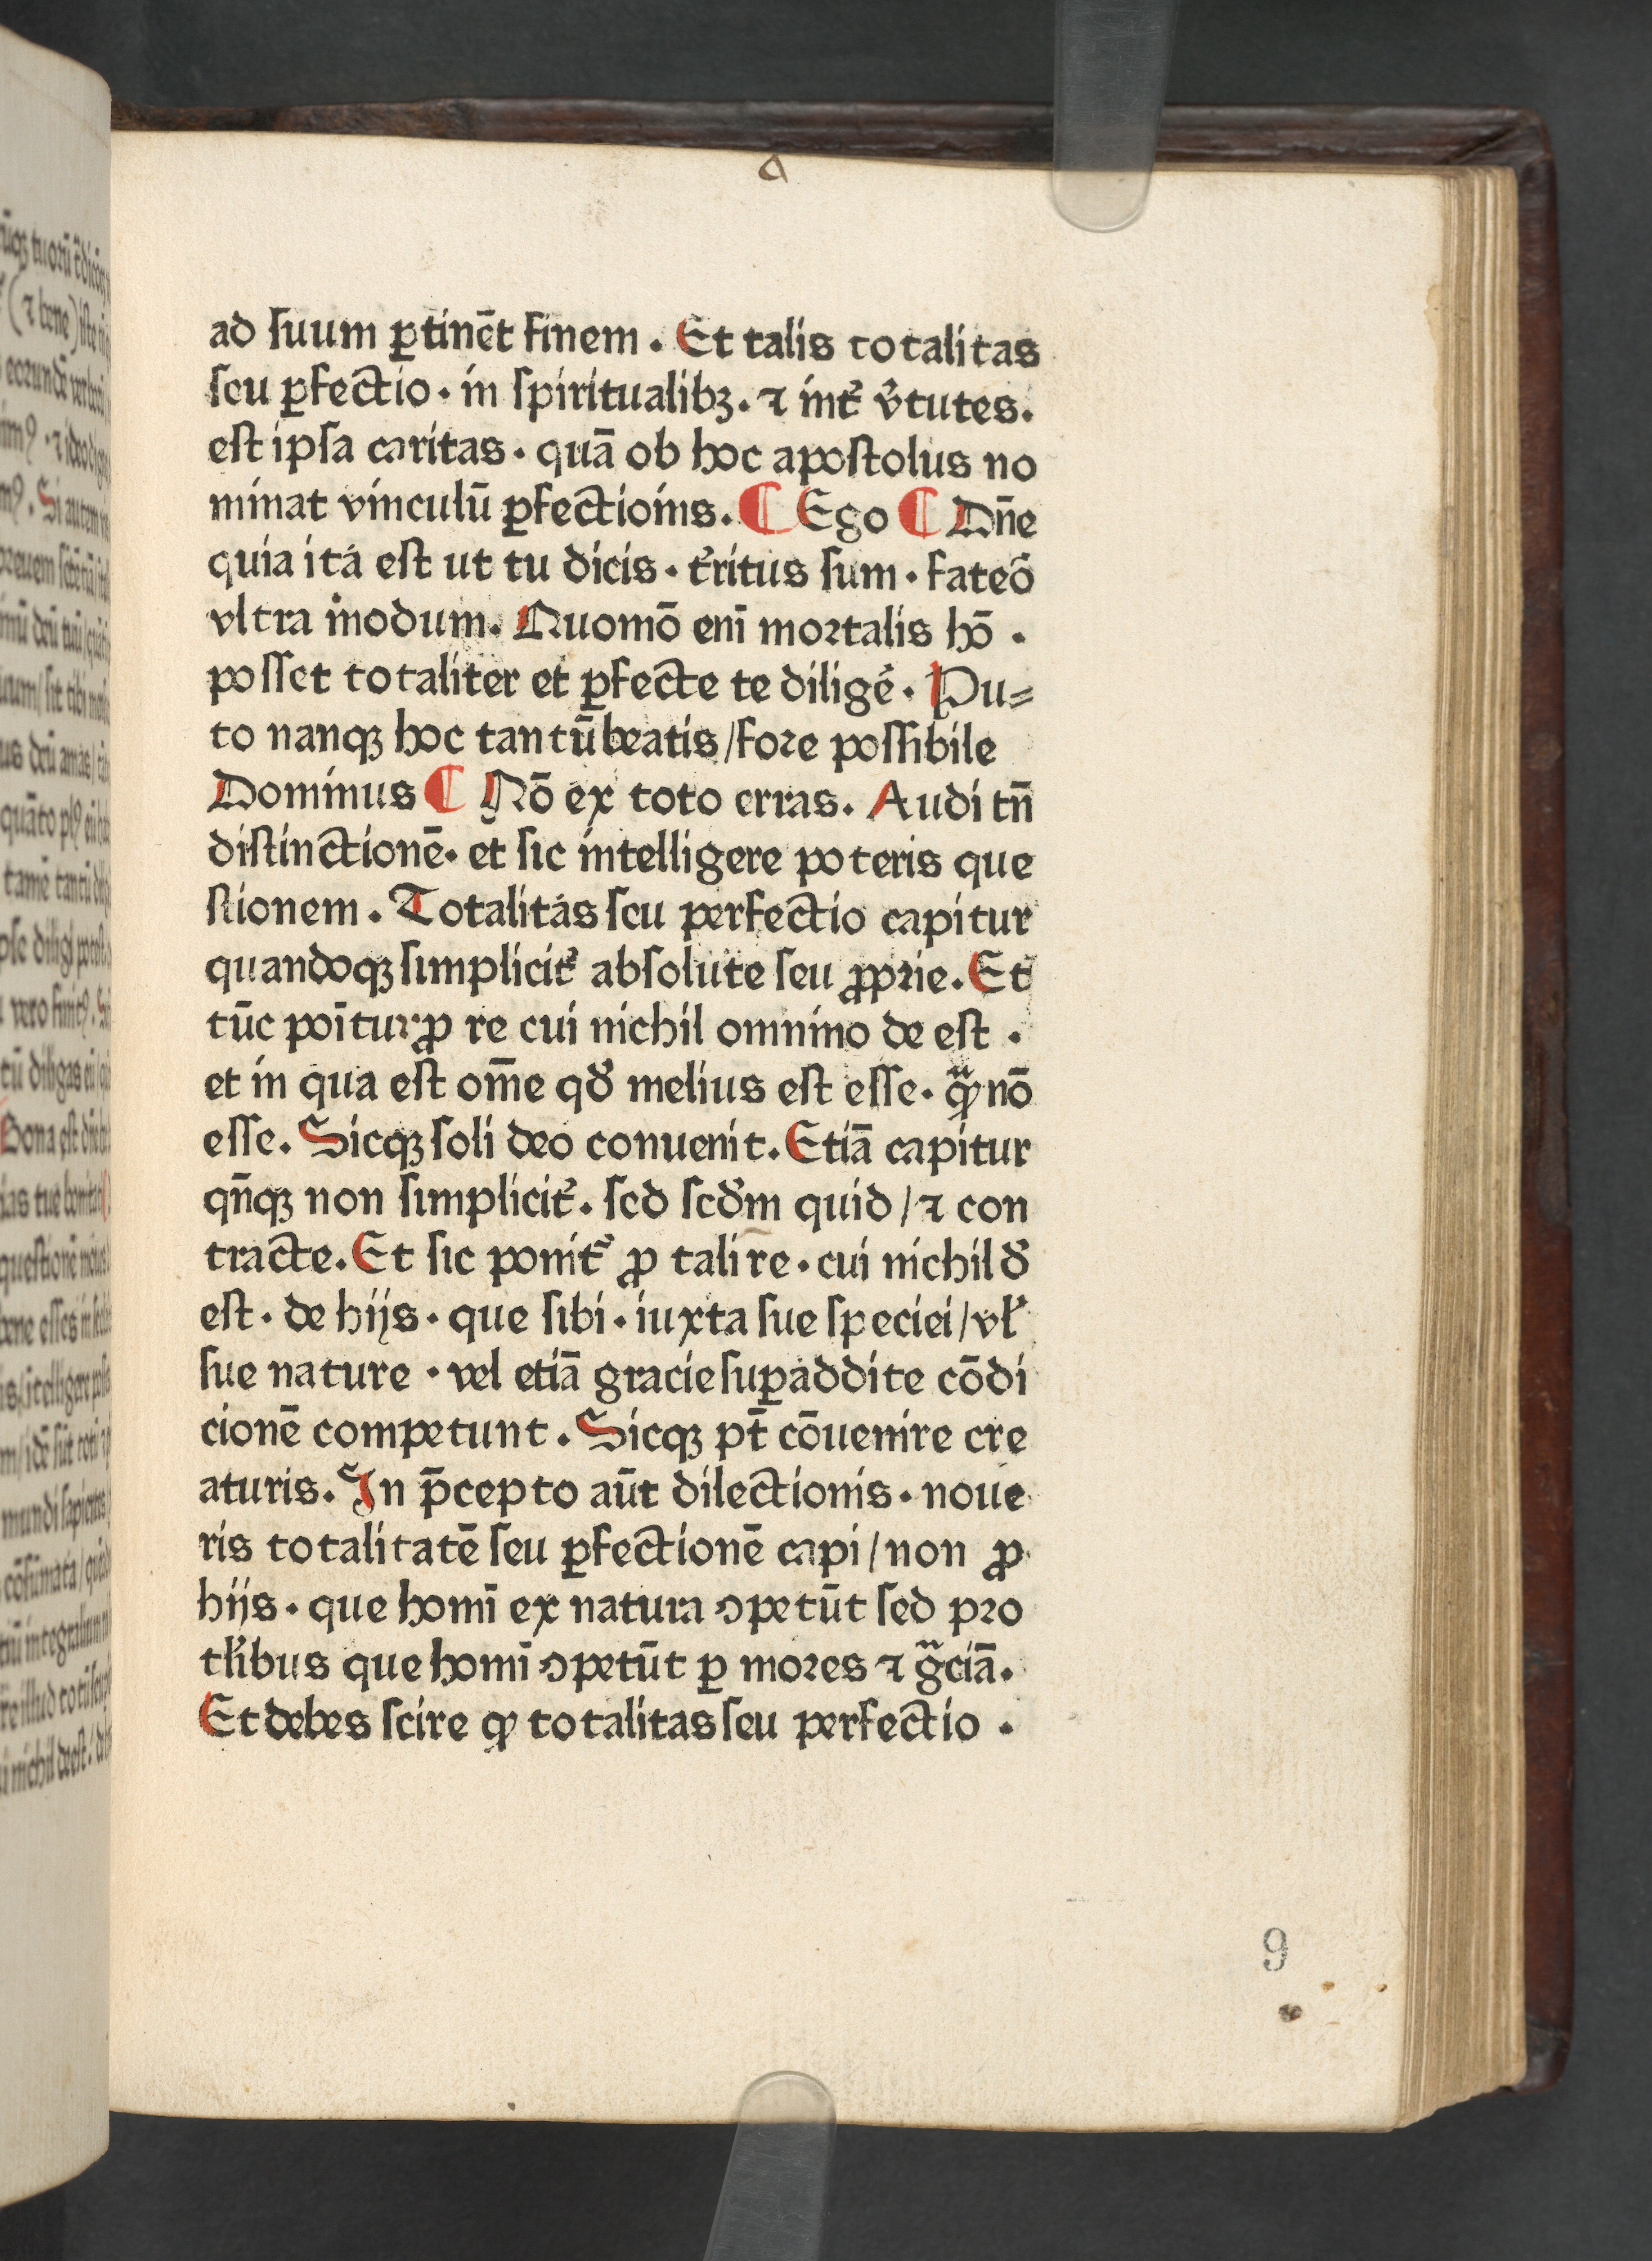 a
ad suum ꝑtinēt finem . Et talis totalitas
seu ꝑfectio · in spiritualibꝫ. ⁊ int᷑ v᷑tutes.
est ipsa caritas · quā ob hoc apostolus no
minat vinculū ꝑfectionis. ¶ Ego ¶ Dn̄e
quia ita est ut tu dicis · t᷑ritus sum · fateo᷑
vltra modum. Quomō eni̅ mortalis hō .
posset totaliter et ꝑfecte te diligē · Pu⸗
to nanqꝫ hoc tantū beatis /fore possibile
Dominus ¶ Nō ex toto erras. Audi tn̄
distinctionē· et sic intelligere poteris que
stionem . Totalitas seu perfectio capitur
quandoqꝫ simplicit᷑ absolute seu ꝓprie. Et
tūc poi̅tur ꝓ re cui nichil omnino de est .
et in qua est om̄e qđ melius est esse · qᷓꝫ nō
esse. Sicqꝫ soli deo conuenit. Etiā capitur
qn̄qꝫ non simplicit᷑. sed scđm quid / ⁊ con
tracte. Et sic ponit᷑ ꝓ tali re · cui nichil đ
est · de hijs · que sibi · iuxta sue speciei / vł
sue nature · vel etiā gracie suꝑaddite cōdi
cionē competunt . Sicqꝫ pt̄ cōuenire cre
aturis. In p̄cepto aūt dilectionis · noue
ris totalitatē seu ꝑfectionē capi / non ꝓ
hijs · que homi̅ ex natura ꝯpetūt sed pro
tłibus que homi̅ ꝯpetūt ꝑ mores ⁊ gᷓciā.
Et debes scire ꝙ totalitas seu perfectio .
9